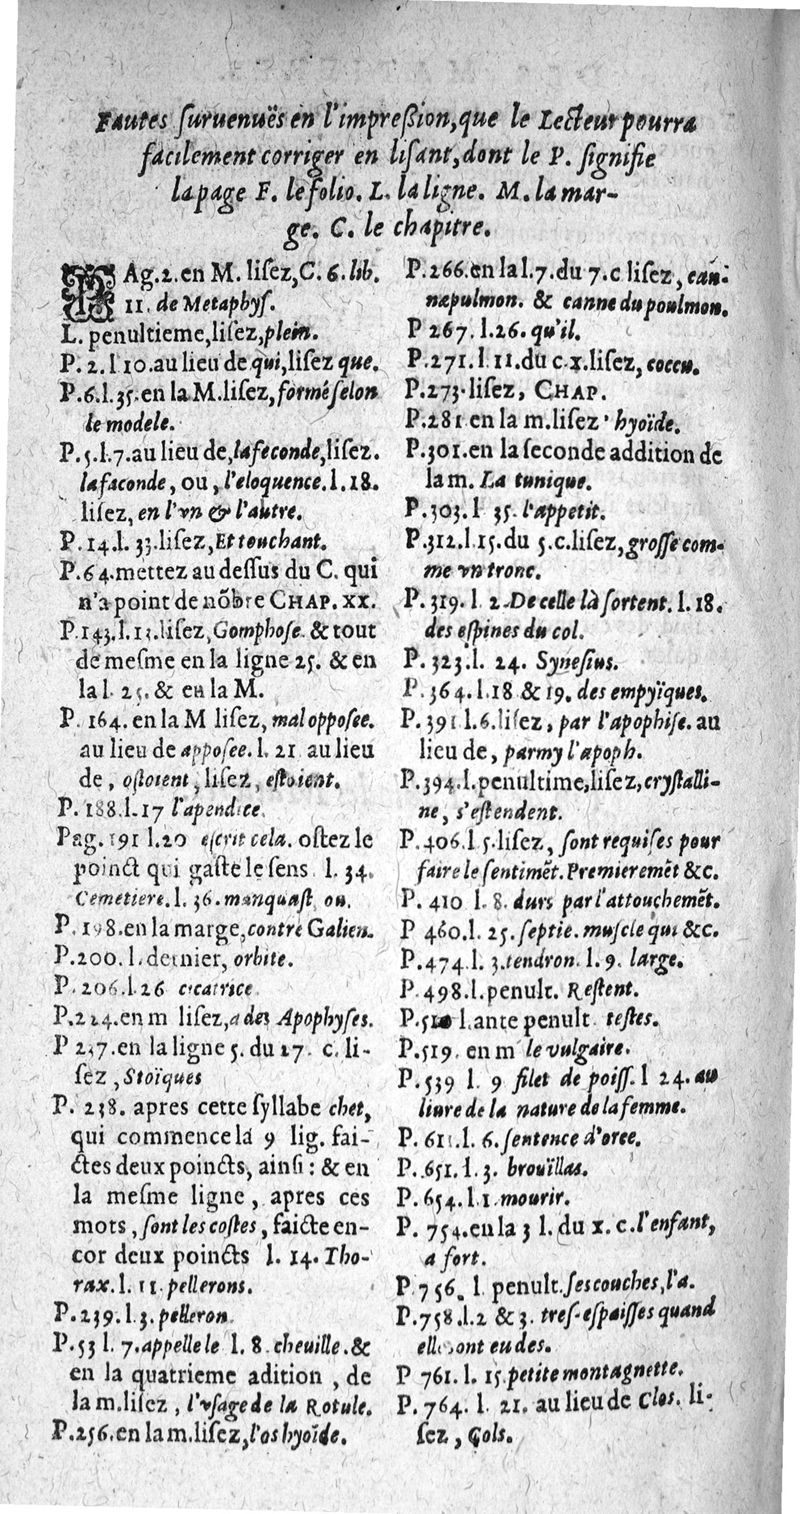 Fautes ſuruenuës en l'impreßion, que le Lecteur pourra
facilement corriger en liſant, dont le P. ſignifie
la page F. le folio. L. la ligne. M. la mar-
ge. C. le chapitre.
PAg. 2. en M. liſez, C. 6. lib.
11. de Metaphyſ.
L. penultieme, liſez, plein.
P. 2. l 10. au lieu de qui, liſez que.
P. 6. l. 35. en la M. liſez, formé ſelon
le modele.
P. 5. l. 7. au lieu de, la feconde, liſez.
la faconde, ou, l'eloquence. l. 18.
liſez, en l'vn & l'autre.
P. 14. l. 33. liſez, Et touchant.
P. 64. mettez au deſſus du C. qui
n'a point de nõbre CHAP. XX.
P. 143. l. 13. liſez, Gomphoſe. & tout
de meſme en la ligne 25. & en
la l. 25. & en la M.
P. 164. en la M liſez, mal oppoſee.
au lieu de appoſee. l. 21 au lieu
de, oſtoient, liſez, eſtoient.
P. 188. l. 17 l'apendice.
Pag. 191 l. 20 eſcrit cela. oſtez le
poinct qui gaſte le ſens l. 34.
Cemetiere. l. 36. manquaſt ou.
P. 198. en la marge, contre Galien.
P. 200. l. dernier, orbite.
P. 206. l. 26 cicatrice
P. 224. en m liſez, a des Apophyſes.
P 237. en la ligne 5. du 27. c. li-
ſez, Stoïques
P. 238. apres cette ſyllabe chet,
qui commence la 9 lig. fai-
ctes deux poincts, ainſi : & en
la meſme ligne, apres ces
mots, ſont les coſtes, faicte en-
cor deux poincts l. 14. Tho-
rax. l. 11. pellerons.
P. 239. l. 3. pelleron
P. 53 l. 7. appelle le l. 8. cheuille. &
en la quatrieme adition, de
la m. liſez, l'vſage de la Rotule.
P. 256. en la m. liſez, l'os hyoïde.
P. 266. en la l. 7. du 7. c liſez, can-
næ pulmon. & canne du poulmon.
P 267. l. 26. qu'il.
P. 271. l 11. du c. x. liſez, coccu.
P. 273. liſez, CHAP.
P. 281 en la m. liſez hyoïde.
P. 301. en la ſeconde addition de
la m. La tunique.
P. 303. l 35. l'appetit.
P. 312. l. 15. du 5. c. liſez, groſſe com-
me vn tronc.
P. 319. l 2. De celle là ſortent. l. 18.
des eſpines du col.
P. 323. l. 24. Syneſius.
P. 364. l. 18 & 19. des empyïques.
P. 391 l. 6. liſez, par l'apophiſe. au
lieu de, parmy l'apoph.
P. 394. l. penultime, liſez, cryſtalli-
ne, s'eſtendent.
P. 406. l 5. liſez, ſont requiſes pour
faire le ſentimẽt. Premieremẽt &c.
P. 410 l. 8. durs par l'attouchemẽt.
P 460. l. 25. ſeptie. muſcle qui &c.
P. 474 l. 3. tendron. l. 9. large.
P. 498. l. penult. Reſtent.
l. ante penult teſtes.
P. 519. en m le vulgaire.
P. 539 l. 9 filet de poiſſ. l 24. au
liure de la nature de la femme.
l. 6. ſentence d'oree.
P. 651. l. 3. brouïllas.
P. 654. l. 1 mourir.
P. 754. en la 3 l. du x. c. l'enfant,
a fort.
P 756. l penult. ſes couches, l'a.
P. 758. l. 2 & 3. treſ-eſpaiſſes quand
elle ont eu des.
P 761. l. 15. petite montagnette.
P. 764. l. 21. au lieu de Clos. li-
ſez, Çols.